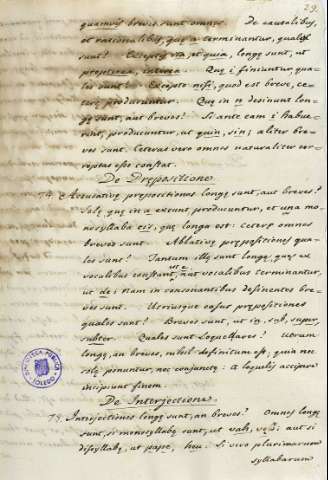 29.
quamvis breves sunt omnes. De causalibus,
et rationalibus, que a terminantur, quales
sunt? Excepto ita, et quia, longę sunt, ut
propterea, interea. Quę i finiuntur, qua-
les sunt? Excepto nisi, quod est breve, ce-
terę producuntur. Quę in n desinunt lon-
gę sunt, aut breves? Si ante eam i habue-
rint, producuntur, ut quin, sin; aliter bre-
ves sunt. Ceteras vero omnes naturaliter cor-
reptas esse constat.
De Prepositione
74. Accusativę prepositiones longę sunt, aut breves?
Solę quę in a exeunt producuntur, et una mo-
nosyllaba cis, quę longa est: ceterę omnes
breves sunt. Ablativę prepositiones qua-
les sunt? Tantum illę sunt longę, quę ex
vocalibus constant, aut vocalibus terminantur,
ut de: nam in consonantibus desinentes bre-
ves sunt. Utriusque casus prepositiones
quales sunt? Breves sunt, ut in, sub, super,
subter. Quales sunt Loquellares? Utrum
longę, an breves, nihil definitum est, quia nec
solę ponuntur, nec conjunctę a loquelis accipere
incipiunt finem.
De Interjectione.
75. Interjectiones longę sunt, an breves? Omnes longę
sunt, si monosyllabę sunt, ut vah, aut si
disyllabę, ut papę, heu. Si vero plurimarum
syllabarum
BIBLIOTECA PUBLICA
TOLEDO